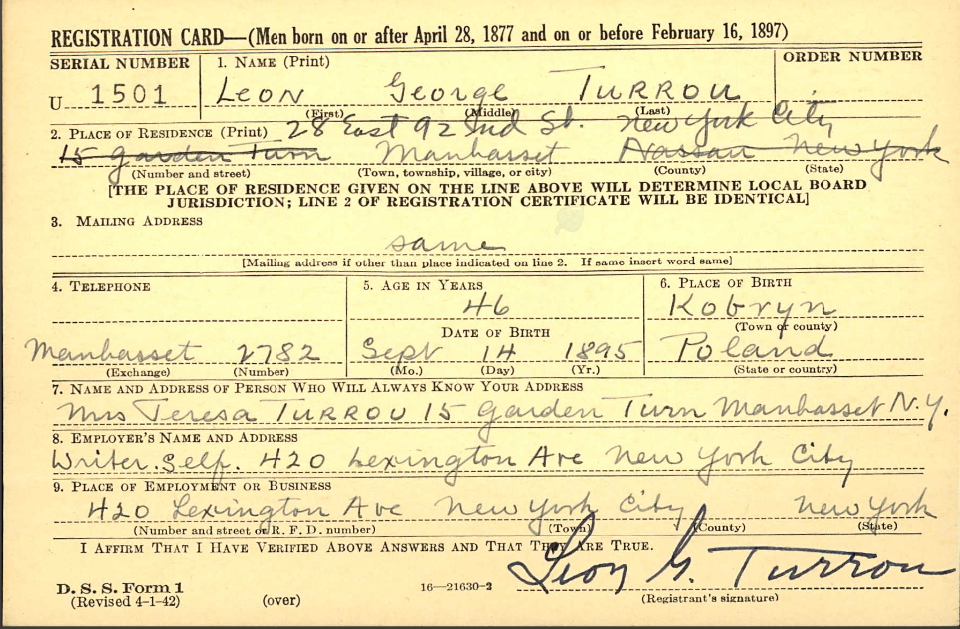 REGISTRATION CARD—(Men born on or after April 28, 1877 and on or before February 16, 1897)
SERIAL NUMBER 1. NAME (Print) ORDER NUMBER
U 1501 LEON George TURROU
(First) (Middle) (Last)
28 East 92nd St. New York City
2. PLACE OF RESIDENCE (Print)
15 Garden Turn Manhasset Nassau New York
(Number and street) (Town, township, village, or city) (County) (State)
[THE PLACE OF RESIDENCE GIVEN ON THE LINE ABOVE WILL DETERMINE LOCAL BOARD
JURISDICTION; LINE 2 OF REGISTRATION CERTIFICATE WILL BE IDENTICAL]
3. MAILING ADDRESS
same
[Mailing address if other than place indicated on line 2. If same insert word same]
4. TELEPHONE 5. AGE IN YEARS 6. PLACE OF BIRTH
46 Kobryn
DATE OF BIRTH (Town or county)
Manhasset 2782 Sept 14 1895 Poland
(Exchange) (Number) (Mo.) (Day) (Yr.) (State or country)
7. NAME AND ADDRESS OF PERSON WHO WILL ALWAYS KNOW YOUR ADDRESS
Mrs Teresa TURROU 15 Garden Turn Manhasset N.Y.
8. EMPLOYER'S NAME AND ADDRESS
Writer. Self. 420 Lexington Ave New York City
9. PLACE OF EMPLOYMENT OR BUSINESS
420 Lexington Ave New York City New York
(Number and street or R. F. D. number) (Town) (County) (State)
I AFFIRM THAT I HAVE VERIFIED ABOVE ANSWERS AND THAT THEY ARE TRUE.
Leon G. Turrou
D. S. S. Form 1 16—21630-2
(Revised 4-1-42) (over) (Registrant's signature)